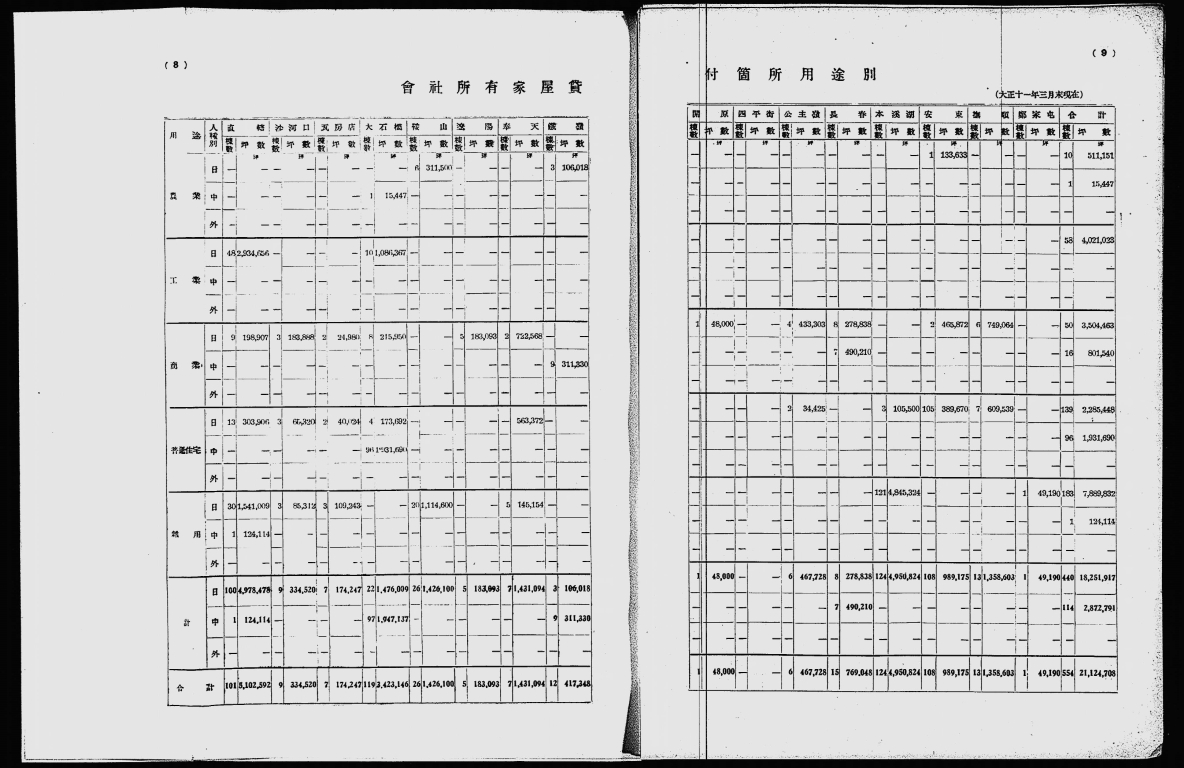 ( 8 )
會社所有家屋貸
用途 人種別 直轄 沙河口 瓦房店 大石橋 鞍山 遼陽 奉天 鐵嶺
棟數 坪數 棟數 坪數 棟數 坪數 棟數 坪數 棟數 坪數 棟數 坪數 棟數 坪數 棟數 坪數
農業 日 — — — — — — — — 6 311,500 — — — — 3 106,018
中 — — — — — — 1 15,447 — — — — — — — —
外 — — — — — — — — — — — — — — — —
工業 日 48 2,934,656 — — — — 10 1,086,367 — — — — — — — —
中 — — — — — — — — — — — — — — — —
外 — — — — — — — — — — — — — — — —
商業 日 9 198,907 3 183,888 2 24,980 8 215,950 — — 5 183,093 2 722,568 — —
中 — — — — — — — — — — — — — — 9 311,330
外 — — — — — — — — — — — — — — — —
普通住宅 日 13 303,906 3 65,320 2 40,024 4 173,692 — — — — — 563,372 — —
中 — — — — — — 96 1,931,690 — — — — — — — —
外 — — — — — — — — — — — — — — — —
雜用 日 30 1,541,009 3 85,312 3 109,243 — — 20 1,114,600 — — 5 145,154 — —
中 1 124,114 — — — — — — — — — — — — — —
外 — — — — — — — — — — — — — — — —
計 日 100 4,978,478 9 334,520 7 174,247 22 1,476,009 26 1,426,100 5 183,093 7 1,431,094 3 106,018
中 1 124,114 — — — — 97 1,947,137 — — — — — — 9 311,330
外 — — — — — — — — — — — — — — — —
合計 101 5,102,592 9 334,520 7 174,247 119 3,423,146 26 1,426,100 5 183,093 7 1,431,094 12 417,348
( 9 )
付箇所用途別
(大正十一年三月末現在)
開原 四平街 公主嶺 長春 本溪湖 安東 撫順 鄭家屯 合計
棟數 坪數 棟數 坪數 棟數 坪數 棟數 坪數 棟數 坪數 棟數 坪數 棟數 坪數 棟數 坪數 棟數 坪數
— — — — — — — — — — 1 133,633 — — — — 10 511,151
— — — — — — — — — — — — — — — — 1 15,447
— — — — — — — — — — — — — — — — — —
— — — — — — — — — — — — — — — — 58 4,021,023
— — — — — — — — — — — — — — — — — —
— — — — — — — — — — — — — — — — — —
1 48,000 — — 4 433,303 8 278,838 — — 2 465,872 6 749,064 — — 50 3,504,463
— — — — — — 7 490,210 — — — — — — — — 16 801,540
— — — — — — — — — — — — — — — — — —
— — — — 2 34,425 — — 3 105,500 105 389,670 7 609,539 — — 139 2,285,448
— — — — — — — — — — — — — — — — 96 1,931,690
— — — — — — — — — — — — — — — — — —
— — — — — — — — 121 4,845,324 — — — — 1 49,190 183 7,889,832
— — — — — — — — — — — — — — — — 1 124,114
— — — — — — — — — — — — — — — — — —
1 48,000 — — 6 467,728 8 278,838 124 4,950,824 108 989,175 13 1,358,603 1 49,190 440 18,251,917
— — — — — — 7 490,210 — — — — — — — — 114 2,872,791
— — — — — — — — — — — — — — — — — —
1 48,000 — — 6 467,728 15 769,048 124 4,950,824 108 989,175 13 1,358,603 1 49,190 554 21,124,708